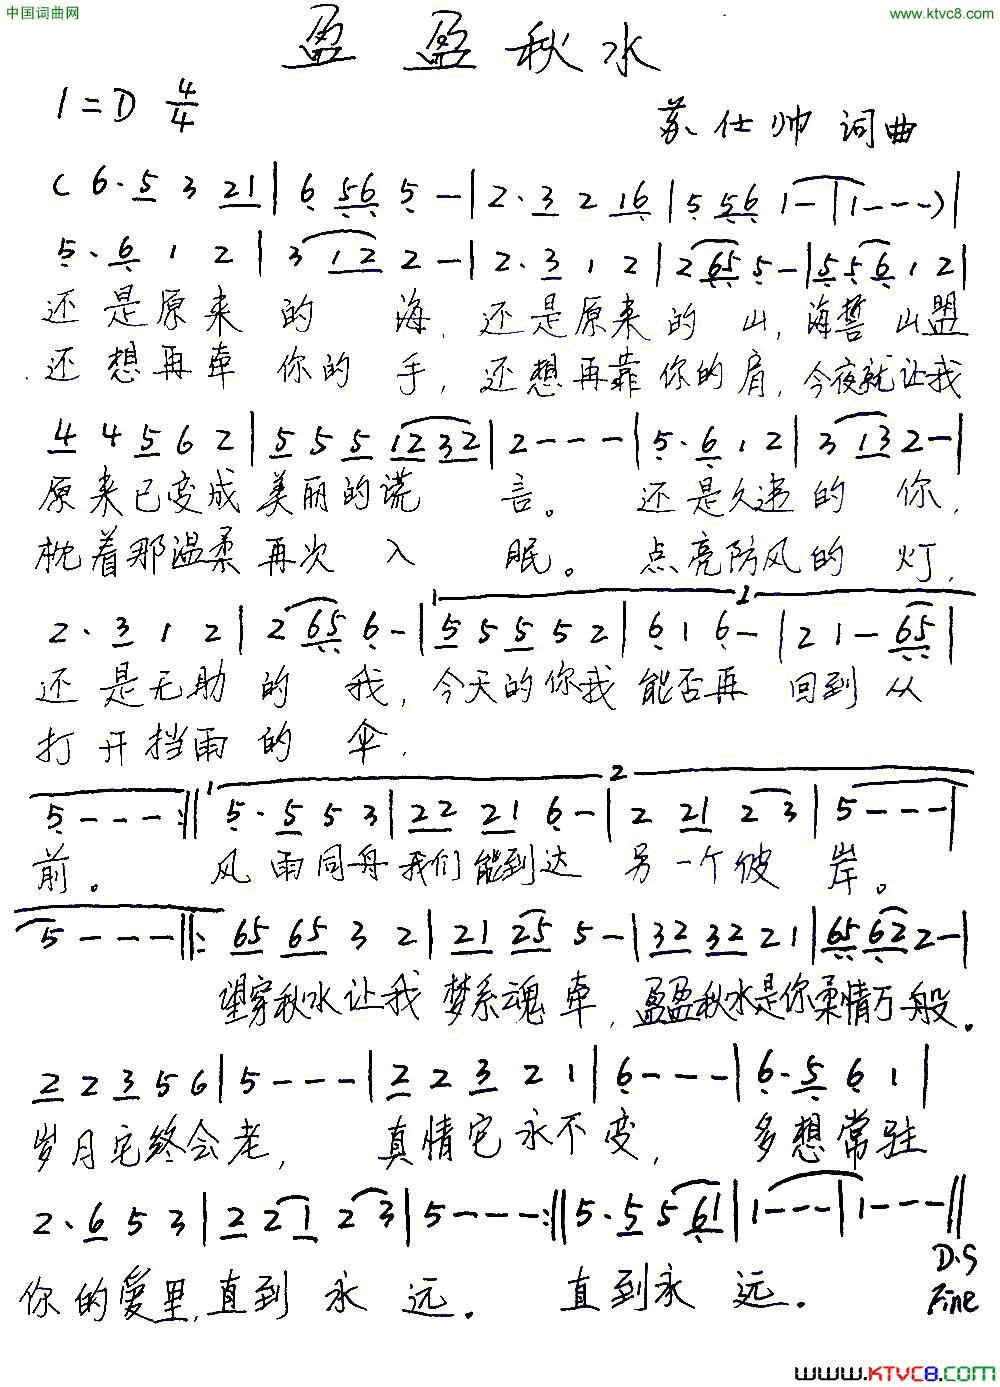 中国词曲网
www.ktvc8.com
盈盈秋水
1=D 4/4
苏仕帅 词曲
( 6· 5 3 21 | 6 56 5 - | 2· 3 2 16 | 5 56 1 - | 1 - - - ) |
5· 6 1 2 | 3 12 2 - | 2· 3 1 2 | 2 65 5 - | 5 5 6 1 2 |
还是原来的海,还是原来的山,海誓山盟
还想再牵你的手,还想再靠你的肩,今夜就让我
4 4 5 6 2 | 5 5 5 12 32 | 2 - - - | 5· 6 1 2 | 3 13 2 - |
原来已变成美丽的谎言。还是久违的你,
枕着那温柔再次入眠。点亮防风的灯,
1 2
2· 3 1 2 | 2 65 6 - | 5 5 5 5 2 | 6 1 6 - | 2 1 - 65 |
还是无助的我,今天的你我能否再回到从
打开挡雨的伞.
1 2
5 - - - :|| 5· 5 5 3 | 22 21 6 - | 2 21 2 3 | 5 - - - |
前。风雨同舟我们能到达另一个彼岸。
5 - - - ||: 65 65 3 2 | 21 25 5 - | 32 32 21 | 65 62 2 - |
望穿秋水让我梦系魂牵,盈盈秋水是你柔情万般。
2 2 3 5 6 | 5 - - - | 2 2 3 2 1 | 6 - - - | 6· 5 6 1 |
岁月它终会老,真情它永不变,多想常驻
2· 6 5 3 | 2 2 1 2 3 | 5 - - - :|| 5· 5 5 61 | 1 - - - | 1 - - - ||
D.S
你的爱里,直到永远。直到永远。
Fine
www.KTVC8.com